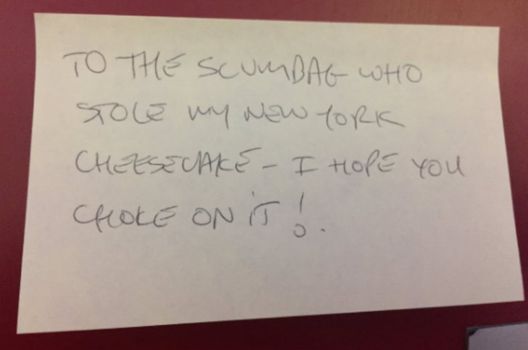 TO THE SCUMBAG WHO
STOLE MY NEW YORK
CHEESECAKE - I HOPE YOU
CHOKE ON IT!